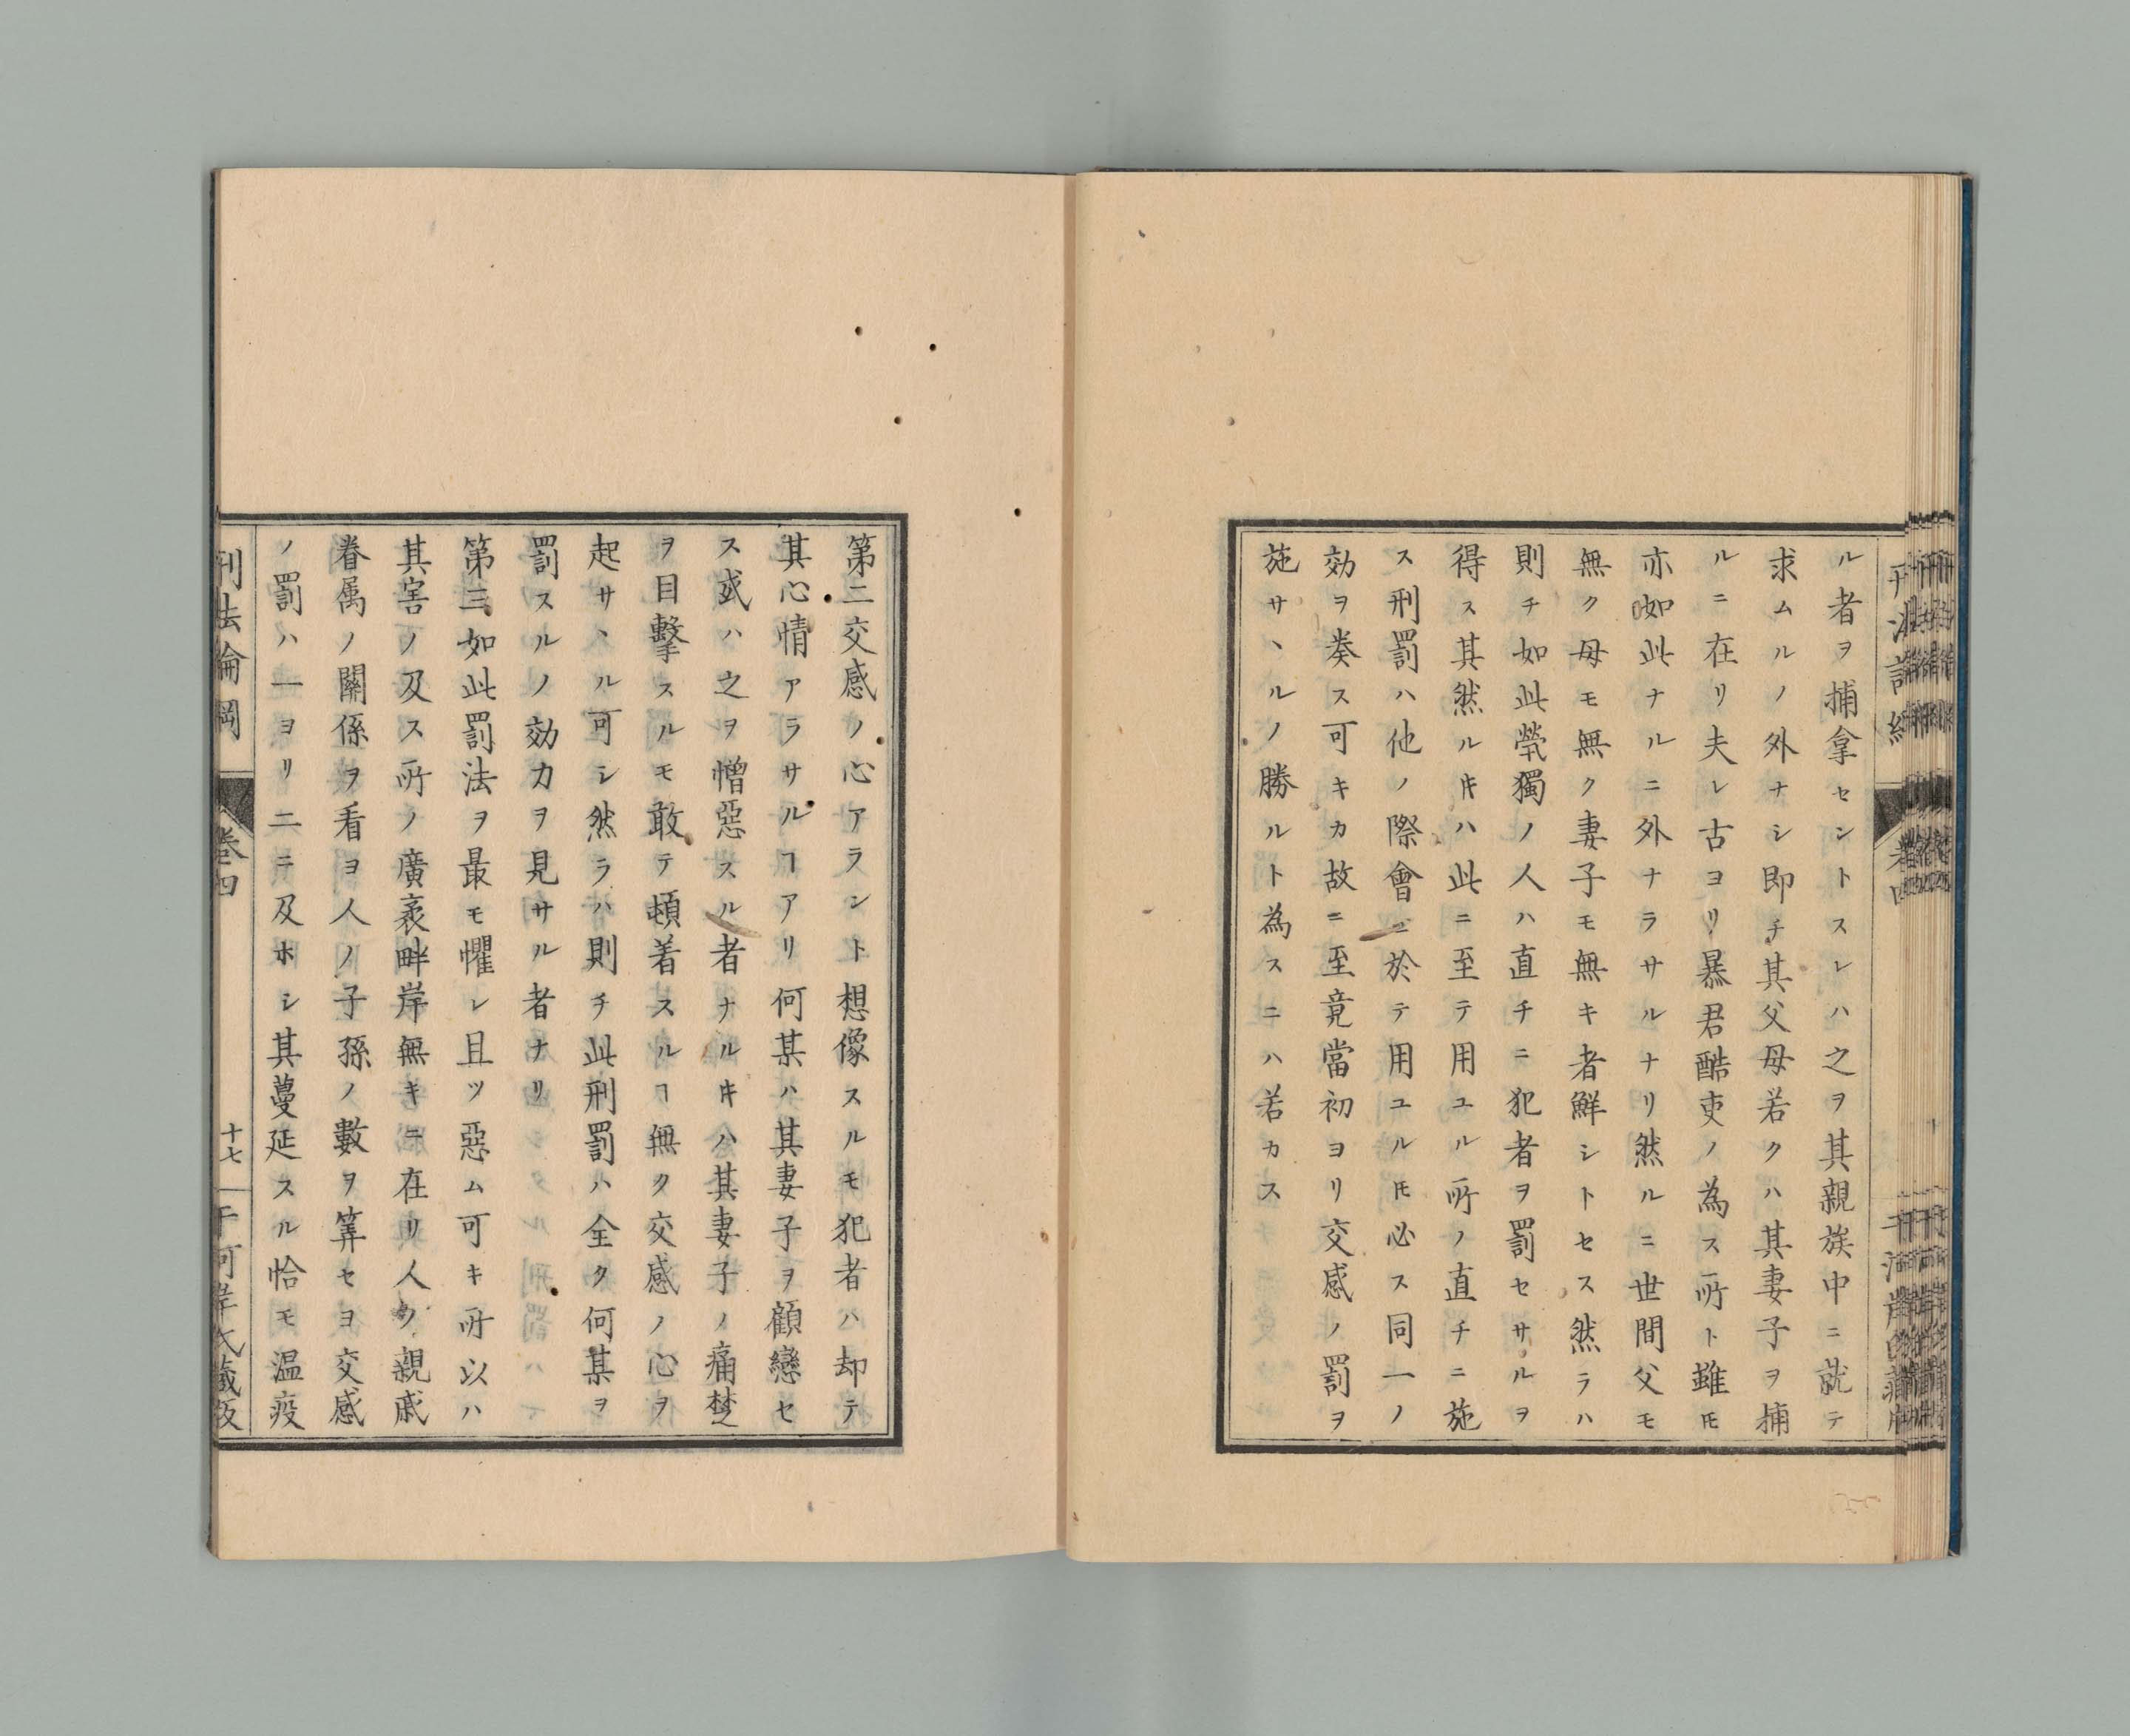 ル者ヲ捕拿セントスレハ之ヲ其親族中ニ就テ
求ムルノ外ナシ即チ其父母若クハ其妻子ヲ捕
ルニ在リ夫レ古ヨリ暴君酷吏ノ為ス所ト雖𪜈
亦如此ナルニ外ナラサルナリ然ルニ世間父モ
無ク母モ無ク妻子モ無キ者鮮シトセス然ラハ
則チ如此煢獨ノ人ハ直チニ犯者ヲ罰セサルヲ
得ス其然ルキハ此ニ至テ用ユル所ノ直チニ施
ス刑罰ハ他ノ際會ニ於テ用ユル𪜈必ス同一ノ
効ヲ奏ス可キカ故ニ至竟當初ヨリ交感ノ罰ヲ
施サヽルノ勝ルト為スニハ若カス
第二交感ノ心アラント想像スルモ犯者ハ却テ
其心情アラサルヿアリ何某ハ其妻子ヲ顧戀セ
ス或ハ之ヲ憎惡スル者ナルキハ其妻子ノ痛楚
ヲ目擊スルモ敢テ頓着スルヿ無ク交感ノ心ヲ
起サヽル可シ然ラハ則チ此刑罰ハ全ク何某ヲ
罰スルノ効力ヲ見サル者ナリ
第三如此罰法ヲ最モ懼レ且ツ惡ム可キ所以ハ
其害ノ及ス所ノ廣袤畔岸無キニ在リ人ノ親戚
眷属ノ關係ヲ看ヨ人ノ子孫ノ數ヲ筭セヨ交感
ノ罰ハ一ヨリ二ニ及ホシ其蔓延スル恰モ温疫
刑法論綱
巻四
十七
何岸氏藏板